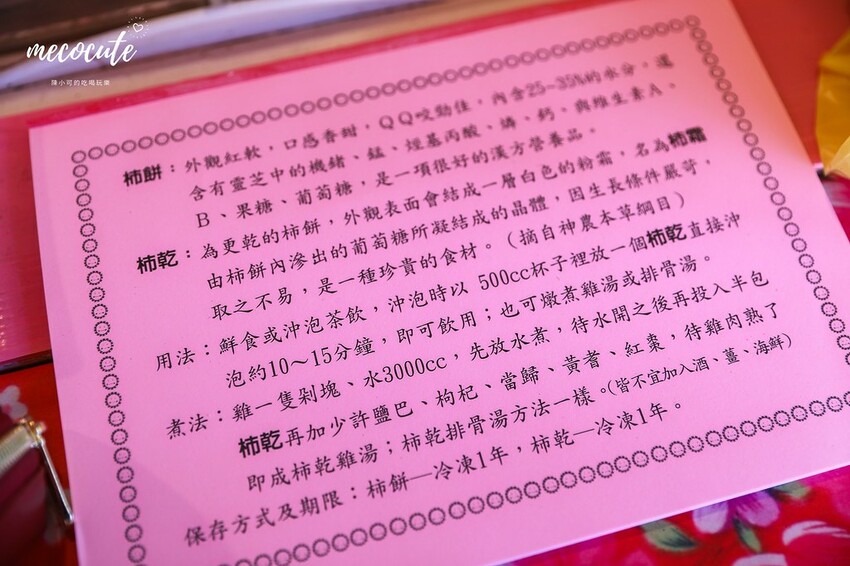 mecocute
陳小可的吃喝玩樂
柿餅：外觀紅軟，口感香甜，QQ咬勁佳，內含25~35%的水分。還
含有靈芝中的機鍺、錳、烴基丙酸、磷、鈣、與維生素A、
B、果糖、葡萄糖，是一項很好的漢方營養品。
柿乾：為更乾的柿餅，外觀表面會結成一層白色的粉霜，名為柿霜
由柿餅內滲出的葡萄糖所凝結成的晶體，因生長條件嚴苛，
取之不易，是一種珍貴的食材。（摘自神農本草綱目）
用法：鮮食或沖泡茶飲，沖泡時以 500cc杯子裡放一個柿乾直接沖
泡約10～15分鐘，即可飲用；也可燉煮雞湯或排骨湯。
煮法：雞一隻剁塊、水3000cc，先放水煮，待水開之後再投入半包
柿乾再加少許鹽巴、枸杞、當歸、黃耆、紅棗，待雞肉熟了
即成柿乾雞湯；柿乾排骨湯方法一樣。(皆不宜加入酒、薑、海鮮)
保存方式及期限：柿餅—冷凍1年，柿乾—冷凍1年。